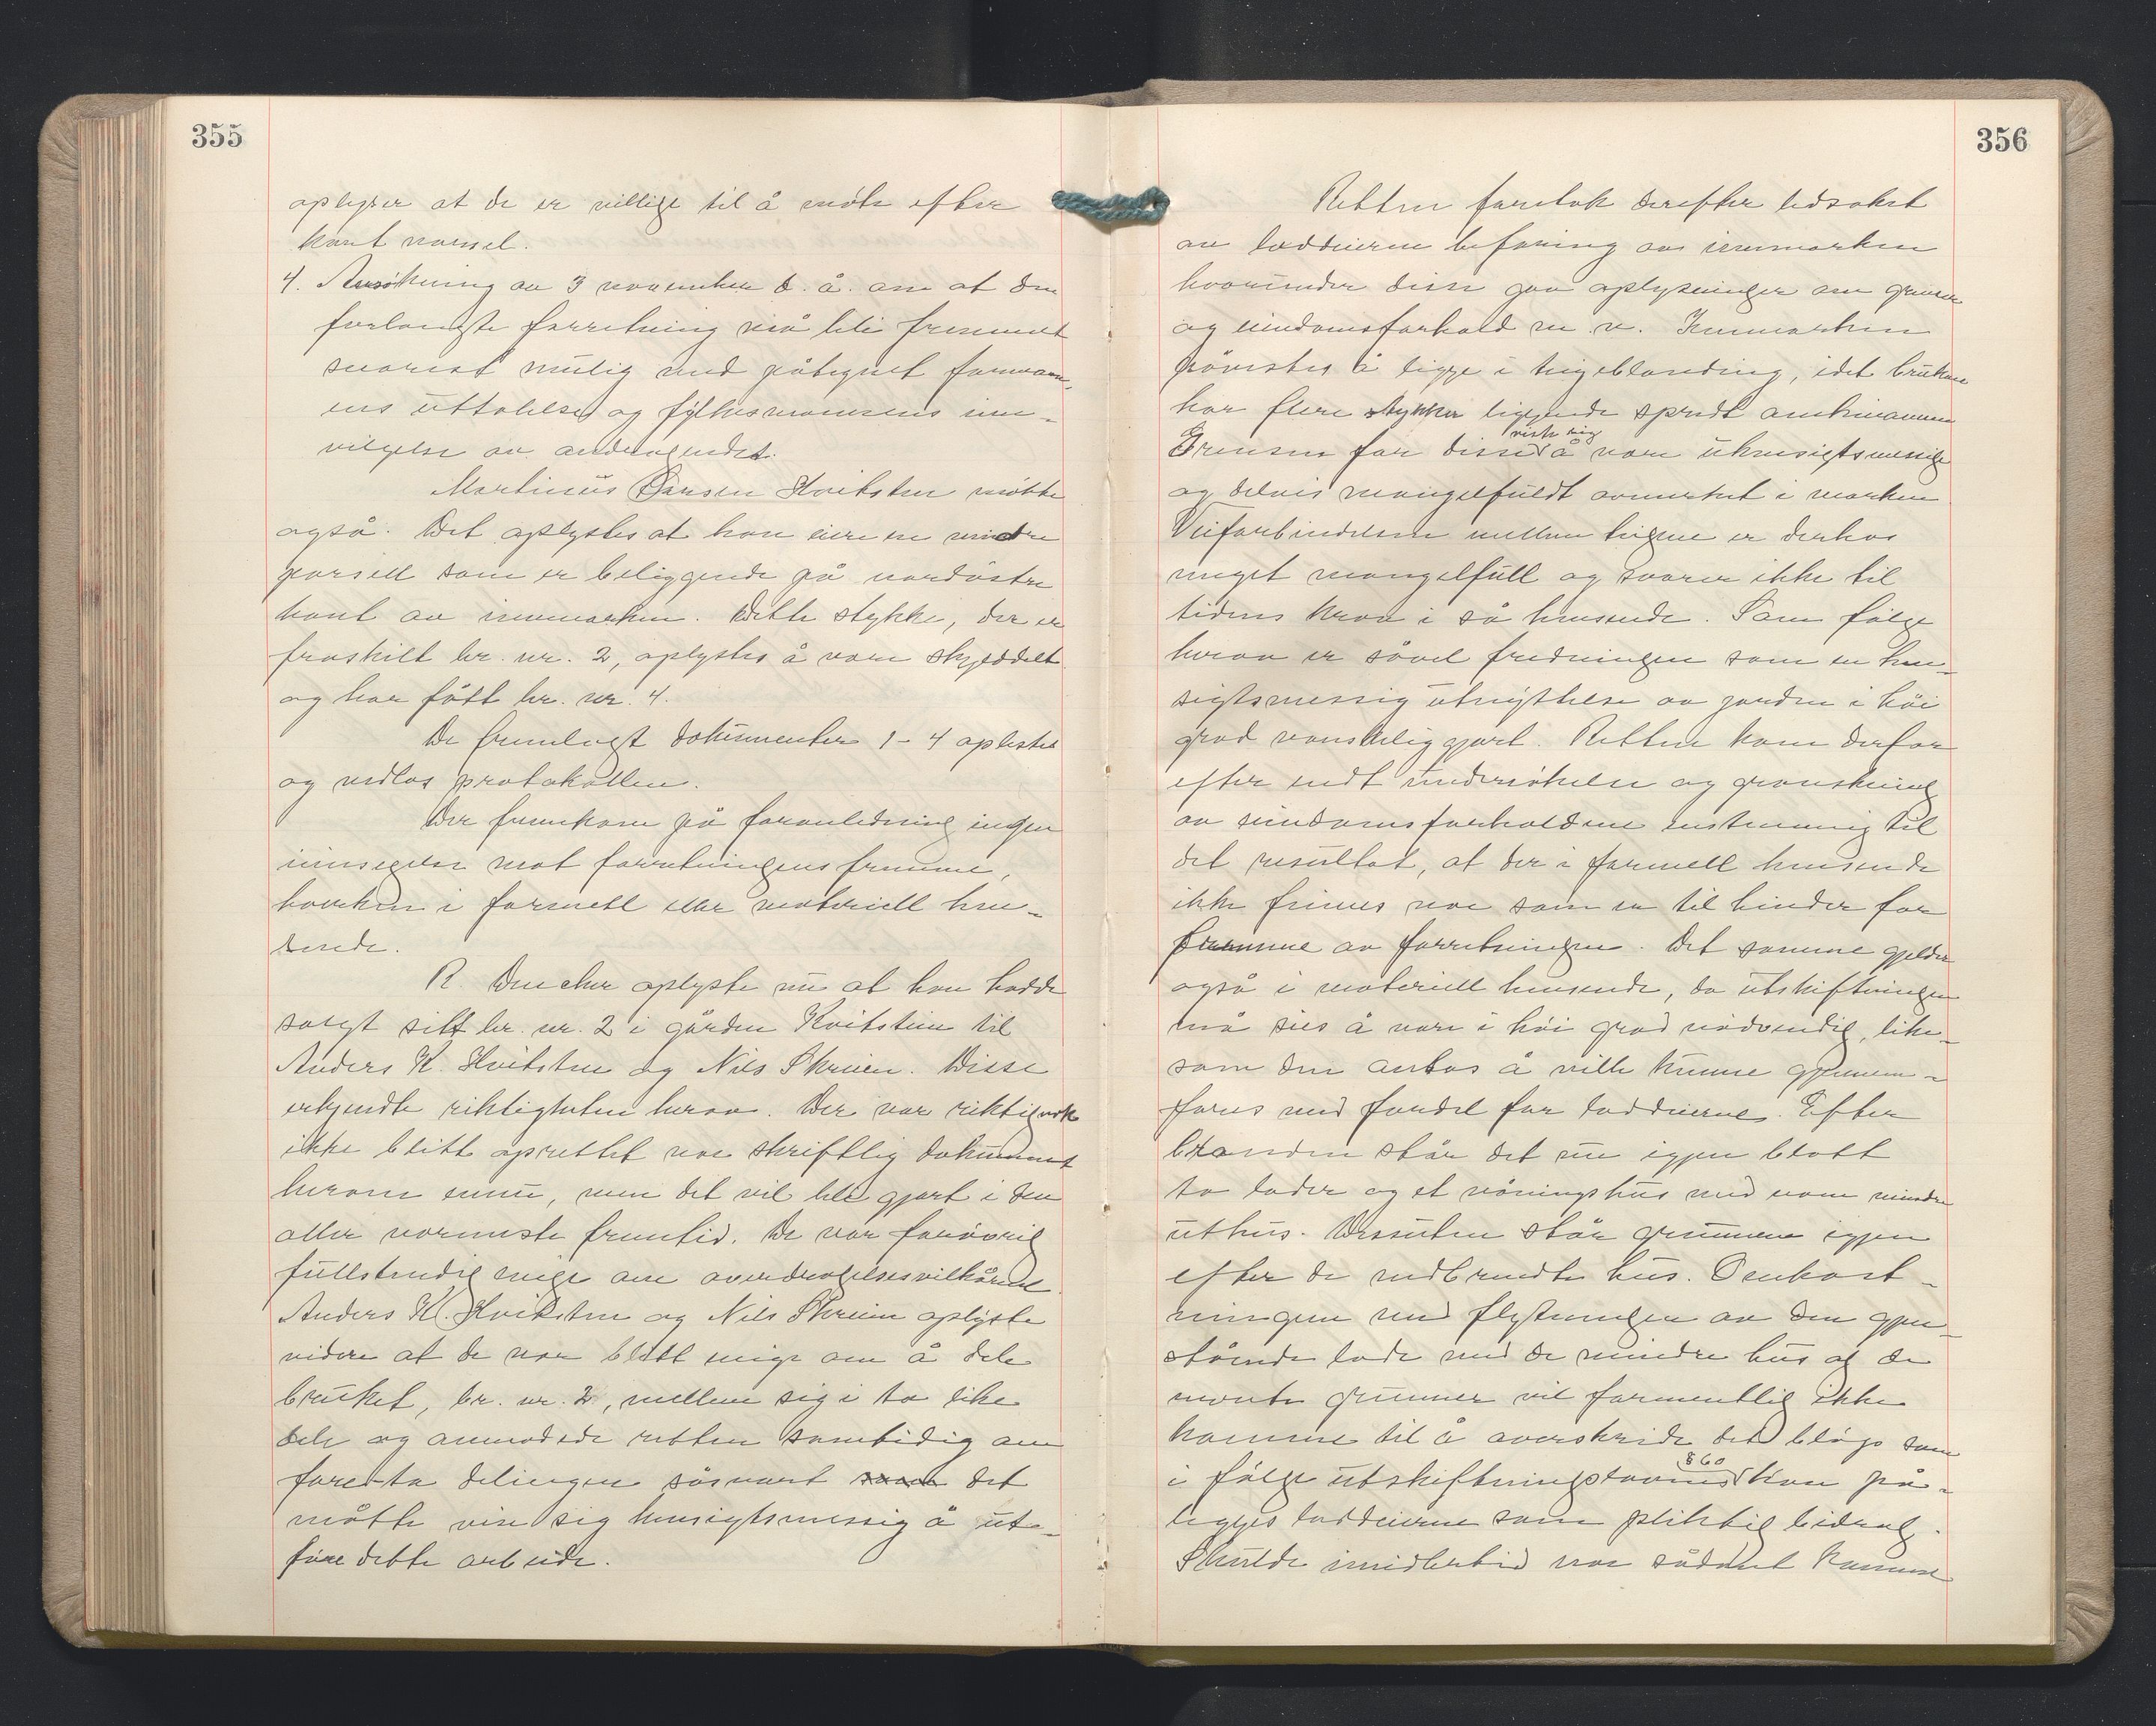 355
oplyser at de er villige til å møte efter
kort varsel.
4. Ansøkning av 3 november d. å. om at den
forlangte forretning må bli fremmet
snarest mulig med påtegnet formann-
ens uttalelse og fylkesmannens inn-
vilgelse av andragendet.
Martinus Larsen Hvitsten møtte
også. Det oplystes at han eier en mindre
parsell som er beliggende på nordøstre
kant av innmarken. Dette stykke, der er
fraskilt br. nr. 2, oplystes å være skjøddelt
og har fått br. nr. 4.
De fremlagt dokumenter 1-4 oplestes
og vedlas protokollen.
Der fremkom på foranledning ingen
innsigelse mot forretningens fremme,
hverken i formell eller materiell hen-
sende.
R. Dencker oplyste nu at han hadde
solgt sitt br. nr. 2 i gården Kvitstein til
Anders K. Hvitsten og Nils Skreien. Disse
erkjendte riktigheten herav. Der var riktignok
ikke blitt oprettet noe skriftlig dokument
herom ennu, men det vil bli gjort i den
aller nærmeste fremtid. De var forøvrig
fullstendig enige om overdragelsesvilkårene.
Anders K. Hvitsten og Nils Skreien oplyste
videre at de var blitt enige om å dele
bruket, br. nr. 2, mellem sig i to like
dele og anmodede retten samtidig om
foreta delingen såsnart som det
måtte vise sig hensigtsmessig å ut-
føre dette arbeide.
356
Retten foretok derefter ledsaket
av loddeierne befaring av innmarken
hvorunder disse gav oplysninger om grenser
og eiendomsforhold m. v. Innmarken
påvistes å ligge i teigeblanding, idet brukene
har flere stykker liggende spredt omkring
Grensene for disse viste sig å være uhensigtsmessige
og delvis mangelfuldt avmerket i marken
Veiforbindelsen mellem teigene er derhos
meget mangelfull og svarer ikke til
tidens krav i så henseende. Som følge
herav er såvel fredningen som en hen-
sigtsmessig utnyttelse av jorden i høi
grad vanskeliggjort. Retten kom derfor
efter endt undersøkelse og granskning
av eiendomsforholdene enstemmig til
det resultat, at der i formell hensende
ikke finnes noe som er til hinder for
fremme av forretningen. Det samme gjelder
også i materiell hensende, da utskiftningen
må sies å være i høi grad nødvendig, like-
som den antas å ville kunne gjennem-
føres med fordel for loddeierne. Efter
branden står det nu igjen blott
to lader og et våningshus med noen mindre
uthus. Dessuten står grunnene igjen
efter de nedbrendte hus. Omkost-
ningen med flytningen av den gjen-
stående lade med de mindre hus og de
nevnte grunner vil formentlig ikke
komme til å overskride det beløp som
i følge utskiftningslovens § 60 kan på-
legges loddeierne som pliktig bidrag.
Skulde imidlertid noe sådant komme